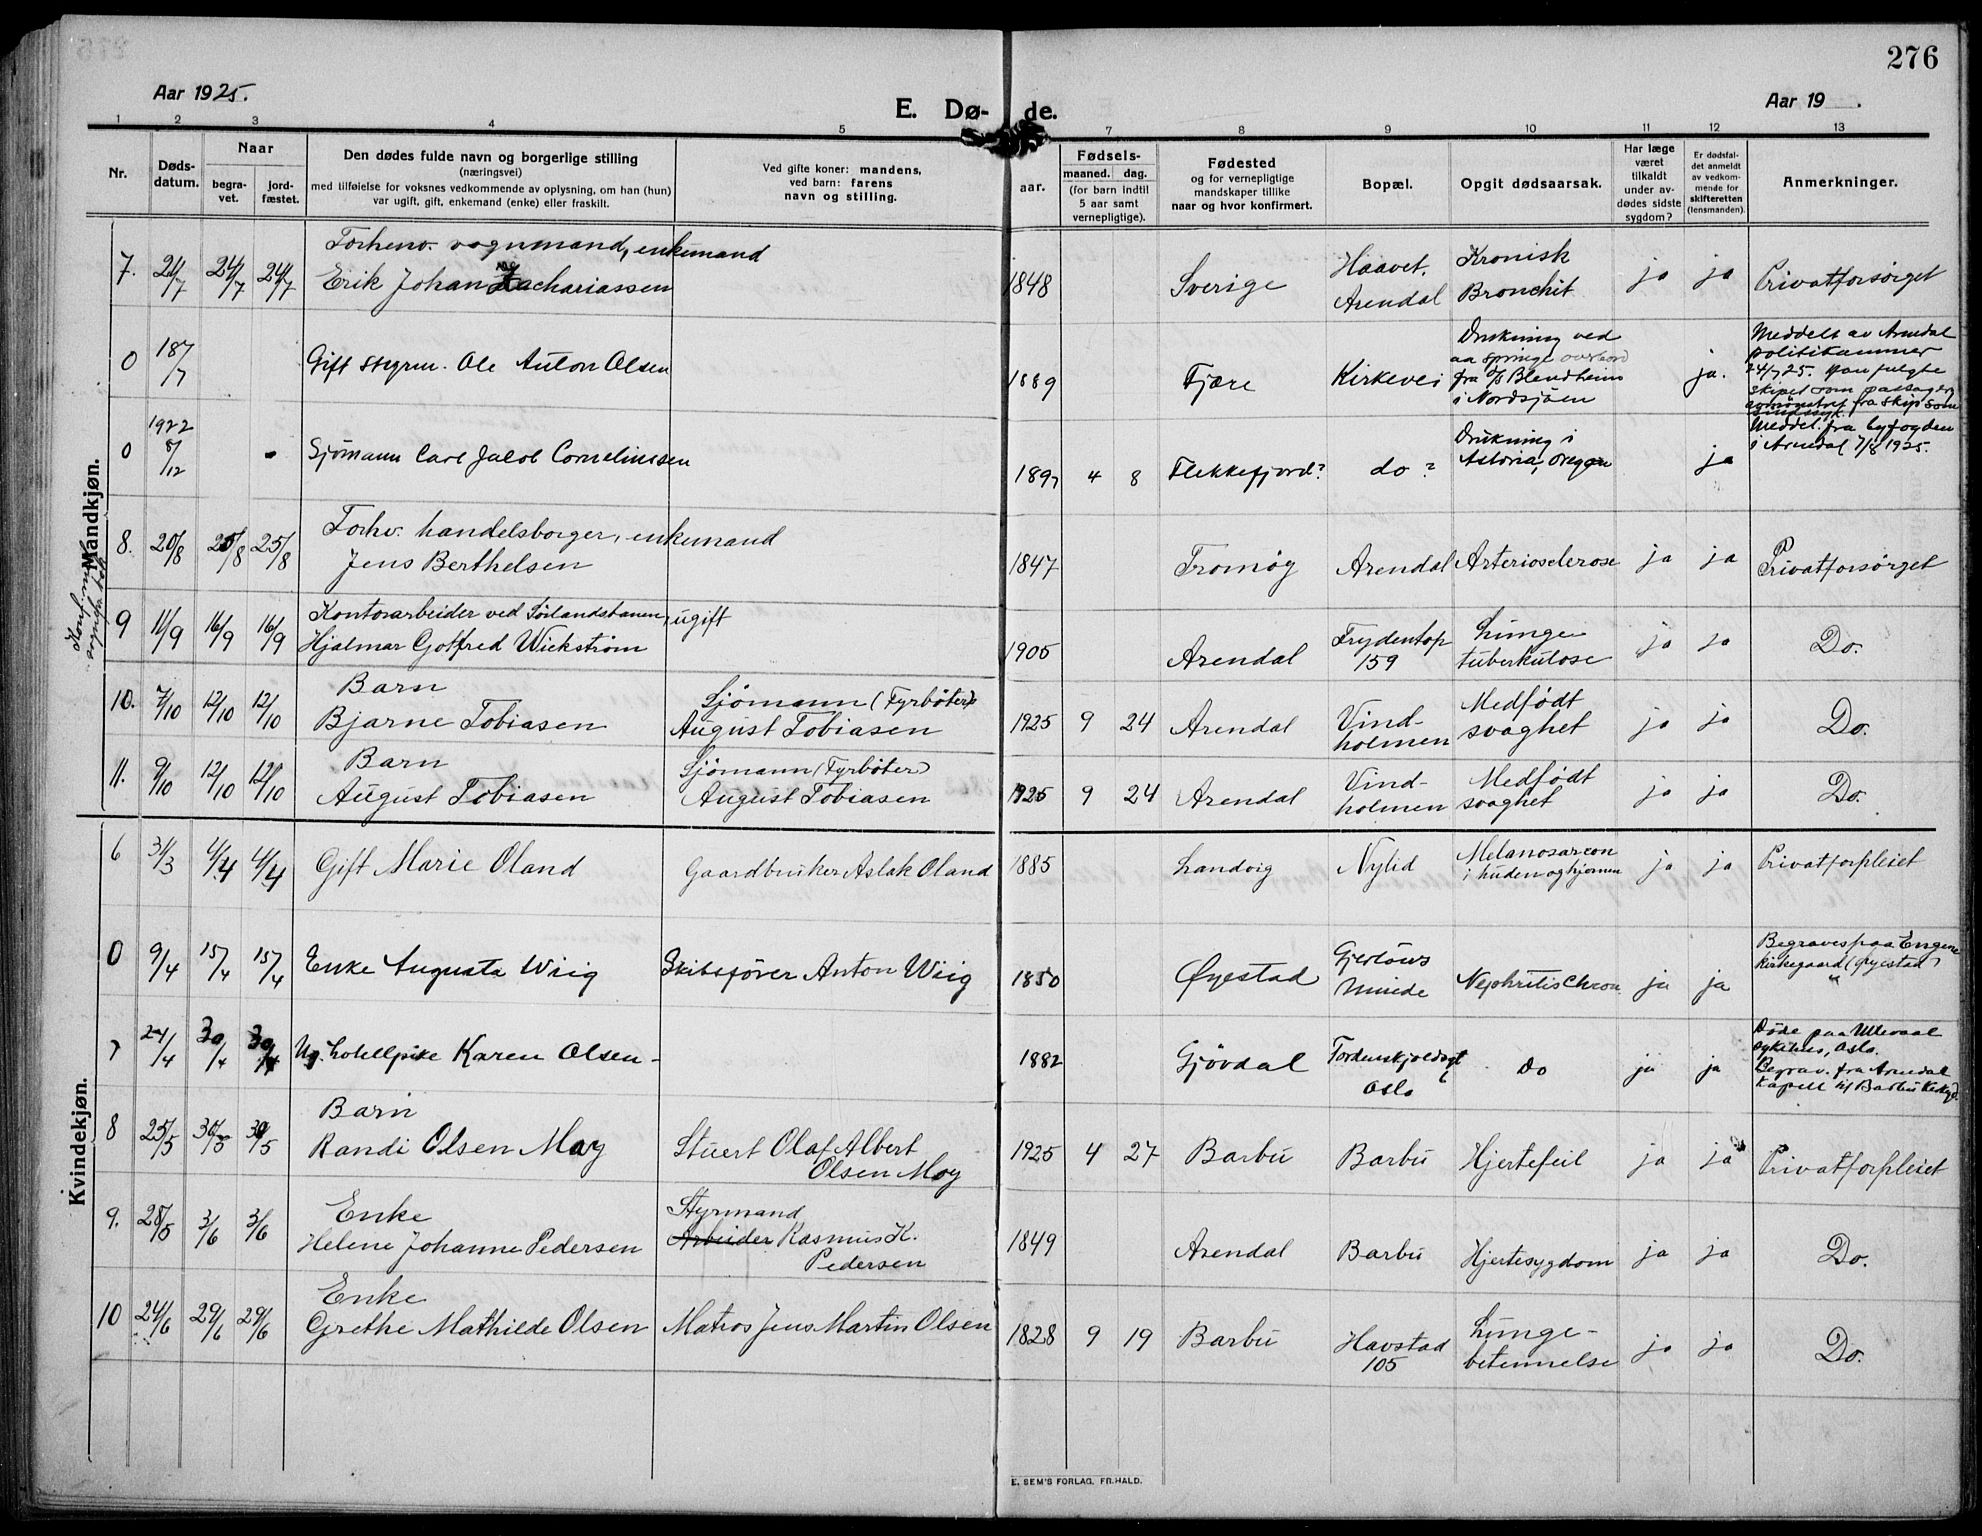 276
Aar 1925.
Aar 19 .
E. Dø- de.
1 2 3 4 5 7 8 9 10 11 12 13
Nr.
Døds-
datum.
Naar
begra-
vet.
jord-
fæstet.
Den dødes fulde navn og borgerlige stilling
(næringsvei)
med tilføielse for voksnes vedkommende av oplysning, om han (hun)
var ugift, gift, enkemand (enke) eller fraskilt.
Ved gifte koner: mandens,
ved barn: farens
navn og stilling.
aar.
Fødsels-
maaned. dag.
(for barn indtil
5 aar samt
vernepligtige).
Fødested
og for vernepligtige
mandskaper tillike
naar og hvor konfirmert.
Bopæl.
Opgit dødsaarsak.
Har læge
været
tilkaldt
under av-
dødes sidste
sygdom?
Er dødsfal-
det anmeldt
av vedkom-
mende for
skifteretten
(lensmanden).
Anmerkninger.
Mandkjøn.
7. 21/7 24/7 24/7
Forhenv. vognmand, enkemand
Erik Johan Zachariassen
1848 Sverige
Haavet,
Arendal
Kronisk
Bronchit
ja ja Privatforsørget
0 18/7
Gift styrm. Ole Anton Olsen
1889 Fjære Kirkevei
Drukning ved
aa springe overbord
fra d/s Blendheim
i Nordsjøen
ja.
Meddelt av Arendal
politikammer
24/7 25. Han fulgte
skipet som passager,
avmønstret fra skip som
sindssyk.
0 1922 8/12
Sjømann Carl Jacob Corneliussen
1897 4 8 Flekkefjord? do?
Drukning i
Astoria, Oregon
ja
Meddel. fra byfogden
i Arendal 7/8 1925.
8. 20/8 25/8 25/8
Forhv. handelsborger, enkemand
Jens Berthelsen
1847 Tromøy Arendal Arteriosclerose ja ja Privatforsørget
9 11/9 16/9 16/9
Kontorarbeider ved Sørlandsbanen, ugift
Hjalmar Gotfred Wickstrøm
1905 Arendal
Frydentop
159
Lunge
tuberkulose
ja ja Do.
10. 7/10 12/10 12/10
Barn
Bjarne Tobiasen
Sjømann (Fyrbøter)
August Tobiasen
1925 9 24 Arendal
Vind-
holmen
Medfødt
svaghet
ja ja Do.
11. 9/10 12/10 12/10
Barn
August Tobiasen
Sjømann (Fyrbøter)
August Tobiasen
1925 9 24 Arendal
Vind-
holmen
Medfødt
svaghet
ja ja Do.
Kvindekjøn.
6 31/3 4/4 4/4
Gift Marie Oland
Gaardbruker Aslak Oland
1885 Landvig Nylid
Melanosarcon
i huden og hjernen
ja ja Privatforpleiet
0 9/4 15/4 15/4
Enke Augusta Wiig
Skibsfører Anton Wiig
1850 Øyestad
Gjerløws
Minde
Nephritis Chron.
ja ja
Begraves paa Engene
kirkegaard (Øyestad)
7 24/4 30/4 30/4
Ug. hotellpike Karen Olsen
1882 Gjövdal
Tordenskjoldsgt
Oslo
Do ja ja
Döde paa Ullevaal
sykehus, Oslo.
Begrav. fra Arendal
kapell til Barbu kirkegd.
8 25/5 30/5 30/5
Barn
Randi Olsen Moy
Stuert Olaf Albert
Olsen Moy
1925 4 27 Barbu Barbu Hjertefeil ja ja Privatforpleiet
9. 28/5 3/6 3/6
Enke
Helene Johanne Pedersen
Styrmand
Arbeider Rasmus K.
Pedersen
1849 Arendal Barbu Hjertesygdom ja ja Do.
10 24/6 29/6 29/6
Enke
Grethe Mathilde Olsen
Matros Jens Martin Olsen
1828 9 19 Barbu
Havstad
105
Lunge-
betennelse
ja ja Do.
E. SEM'S FORLAG, FR.HALD.